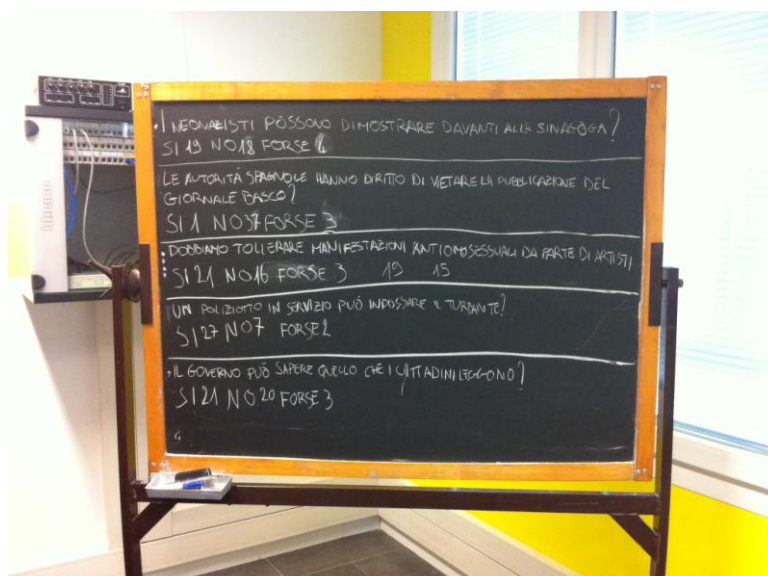 I NEONAZISTI POSSOLO DIMOSTRARE DAVANTI ALLA SINAGOGA?
SI 19 NO 18 FORSE 4
LE AUTORITÁ SPAGNOLE HANNO DIRITTO DI VIETARE LA PUBBLICAZIONE DEL
GIORNALE BASCO?
SI 1 NO 37 FORSE 3
DOBBIAMO TOLLERARE MANIFESTAZIONI ANTIOMOSESSUALI DA PARTE DI ARTISTI
SI 21 NO 16 FORSE 3 19 15
UN POLIZIOTTO IN SERVIZIO PUÓ INDOSSARE IL TURBANTE?
SI 27 NO 7 FORSE 2
IL GOVERNO PUÓ SAPERE QUELLO CHE I CITTADINI LEGGONO?
SI 21 NO 20 FORSE 3